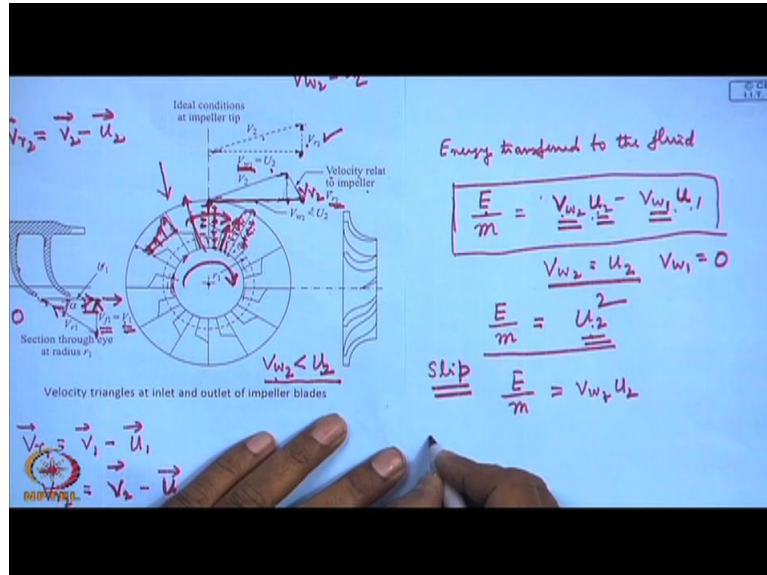 V⃗r2 = V⃗2 − U⃗2
Ideal conditions
at impeller tip
V2
Vr2
Vw2 = U2
V2
Velocity relat
to impeller
Vr2
Vw2 < U2
r1
α
Vf1 = V1
Vr1
0
Section through eye
at radius r1
Vw2 < U2
Velocity triangles at inlet and outlet of impeller blades
= V⃗1 − U⃗1
= V⃗2 − U⃗
NPTEL
I.I.T.
Energy transferred to the fluid
E/m = Vw2 U2 − Vw1 U1
Vw2 = U2 Vw1 = 0
E/m = U2²
Slip E/m = Vw2 U2